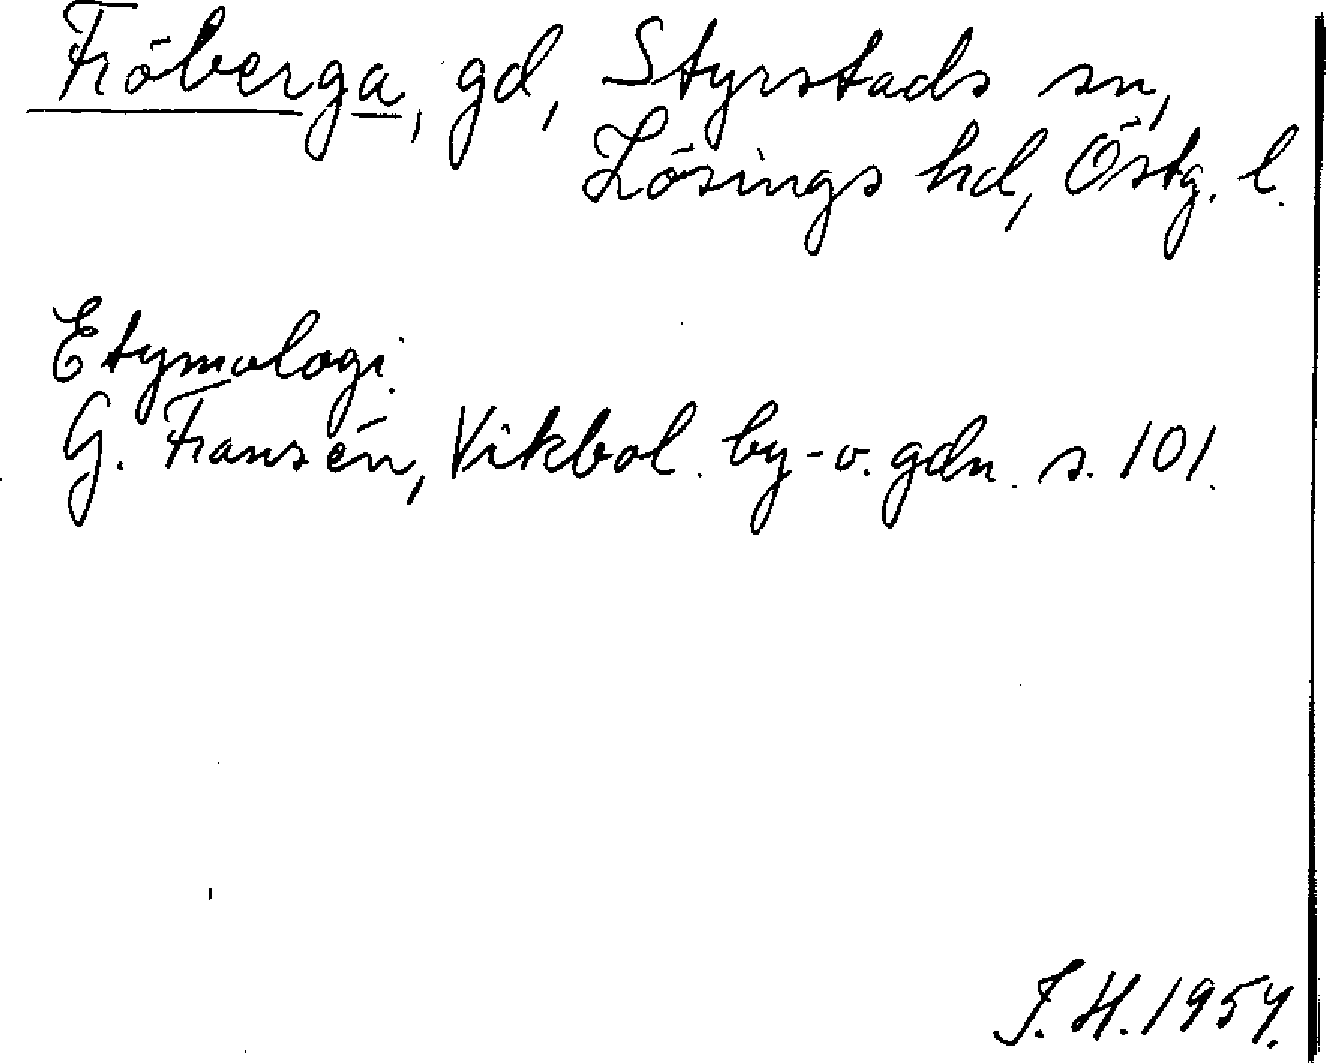 Fröberga, gd, Styrstads sn,
Lösings hd, Östg. l.
Etymologi.
G. Fransén, Vikbol. by- o. gdn. s. 101.
J. H. 1954.